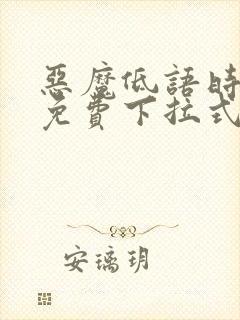 惡魔低語時
免費下拉式
安璃玥